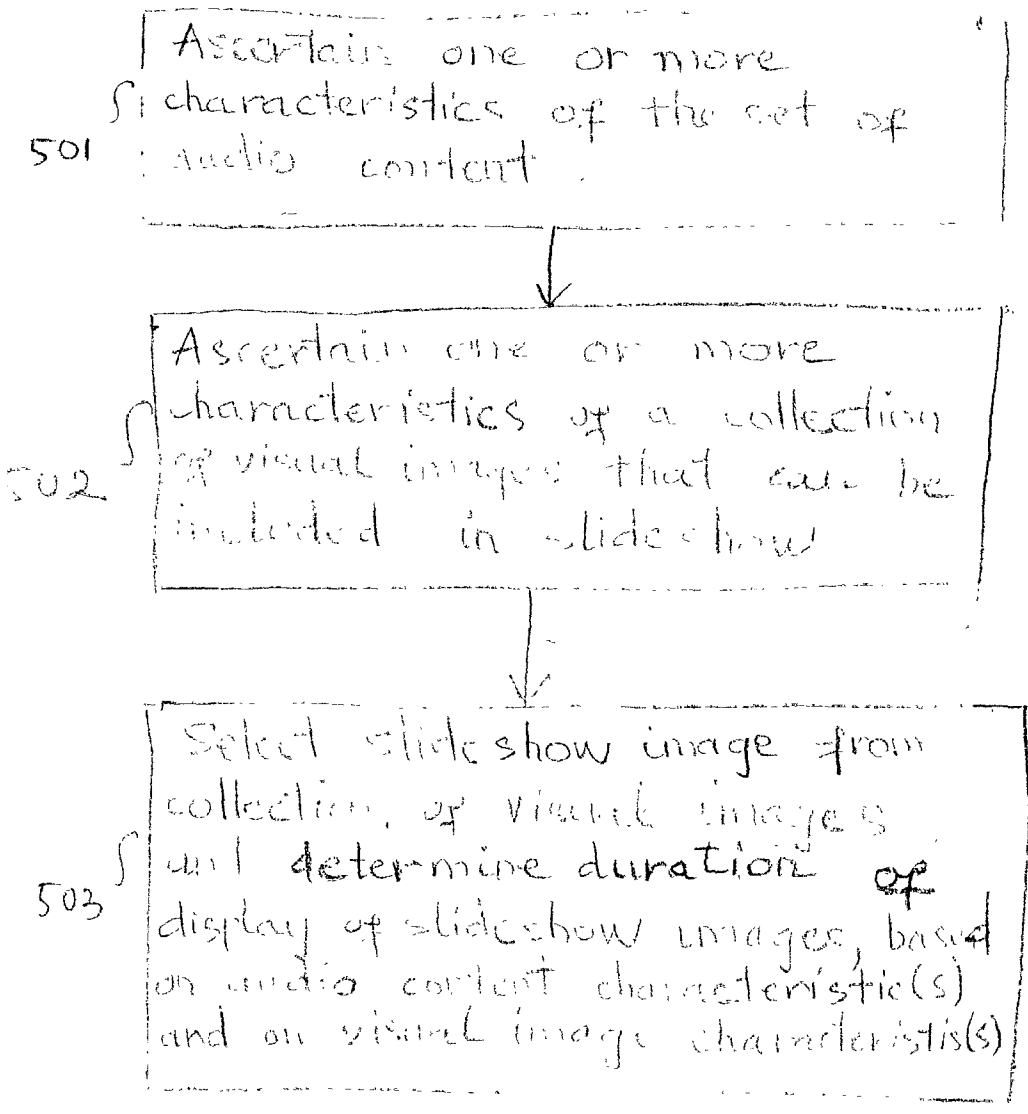 Ascertain one or more
characteristics of the set of
501
audio content.
Ascertain one or more
characteristics of a collection
of visual images that can be
502
included in slideshow
Select slideshow image from
collection, of visual images
and determine duration of
503
display of slideshow images, based
on audio content characteristic(s)
and on visual image characteristis(s)